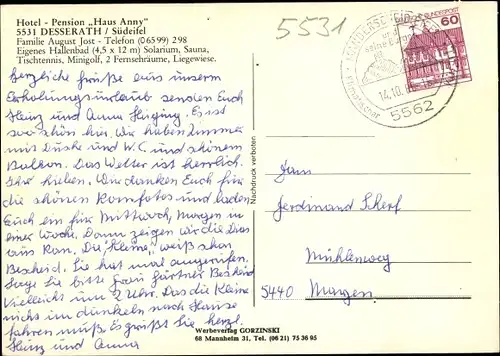 Hotel - Pension „Haus Anny"
5531 DESSERATH / Südeifel
Familie August Jost - Telefon (06599) 298
Eigenes Hallenbad (4,5 x 12 m) Solarium, Sauna,
Tischtennis, Minigolf, 2 Fernsehräume, Liegewiese.
5531
60
14.10.
5562
Herzliche Grüße aus unserem
Erholungsurlaub senden Euch
Heinz und Anna. Es ist
so schön hier. Wir haben Zimmer
mit Dusche und W.C und schönem
Balkon. Das Wetter ist herrlich.
Ihr Lieben. Wir danken Euch für
die schönen Romfotos und laden
Euch ein für Mittwoch, Morgen in
einer Woche. Dann zeigen wir die Dias
aus Rom. Die „Kleine" weiß schon
Bescheid. Sie hat mal angerufen.
Sage Sie bitte Frau Gärtner Bescheid
Vielleicht um 2 Uhr. Das die Kleine
nicht im dunkeln nach Hause
fahren muß. Es grüßt Sie herzl.
Heinz und Anna
Nachdruck verboten
Fam
Ferdinand Scherf
Mühlenweg
5440 Mayen
Werbeverlag GORZINSKI
68 Mannheim 31, Tel. (06 21) 75 36 95